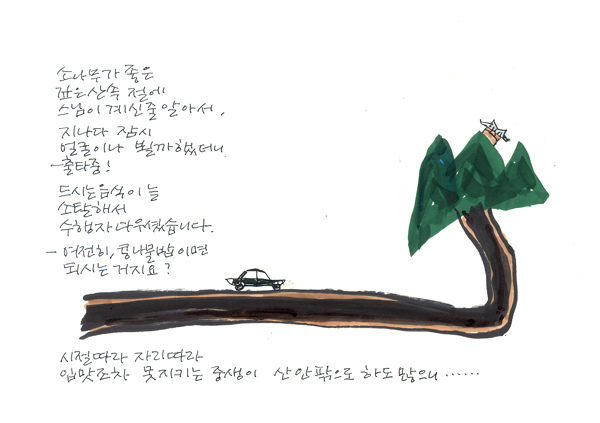 소나무가 좋은
깊은 산속 절에
스님이 계신줄 알아서,
지나다 잠시
얼굴이나 뵐까 했더니
-출타중!
드시는 음식이 늘
소탈해서
수행자다우셨습니다.
- 여전히, 콩나물밥이면
되시는 거지요?
시절따라 자리따라
입맛조차 못지키는 중생이 산 안팎으로 하도 많으니……